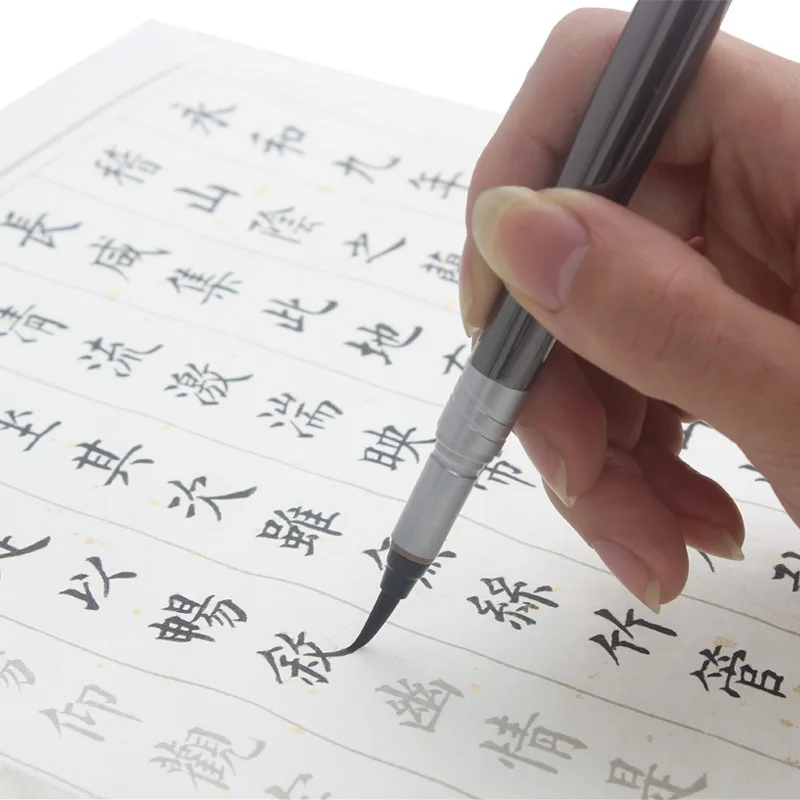 永和九年
稽山陰之蘭
長咸集此地有
清流激湍映帶
坐其次雖無絲竹管
足以暢敘幽情是
仰觀